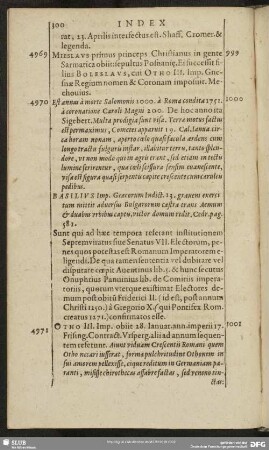 100 INDEX
rat, 23. Aprilis interfectus est. Shaff. Cromer. &
legenda.
4969 MIESLAVS primus princeps Christianus in gente 999
Sarmatica obiit: sepultus Posnaniæ. Et successit fi-
lius BOLESLAVS, cui OTHO III. Imp. Gne-
snæ Regium nomen & Coronam imposuit. Me-
chouius.
4970 Est annus à morte Salomonis 2000. à Roma condita 1751. 1000
à coronatione Caroli Magni 200. De hoc anno ita
Sigebert. Multa prodigia sunt visa. Terræ motus factus
est permaximus, Cometes apparuit 19. Cal. Ianua. cir-
ca horam nonam, aperto cœlo quasi facula ardens cum
longo tractu fulguris instar, illabitur terræ, tanto splen-
dore, vt non modò qui in agris erant, sed etiam in tectis
lumine ferirentur, qua cœli fissura sensim euanescente,
visa est figura quasi serpentis capite crescente cum cæruleis
pedibus.
BASILIVS Imp. Græcorum Indict. 13. grauem exerci-
tum mittit aduersus Bulgarorum castra trans Aemum
& duabus vrbibus captis, victor domum redit. Cedr. pag.
581.
Sunt qui ad hæc tempora referant institutionem
Septemviratus siue Senatus VII. Electorum, pe-
nes quos potestas est Romanum Imperatorem e-
ligendi. De qua tamen sententia vel dubitare vel
disputare cœpit Auentinus lib. 5. & hunc secutus
Onuphrius Panuinius lib. de Comitiis impera-
toriis, quorum vterque existimat Electores de-
mum post obitū Friderici II. (id est, post annum
Christi 1250.) à Gregorio X. (qui Pontifex Rom.
creatus 1271.) constitutos esse.
4971 OTHO III. Imp. obiit 28. Ianuar. ann. imperii 17. 1001
Frising. Contract. Vrsperg. alii ad annum sequen-
tem referunt. Aiunt viduam Crescentii Romani quem
Otho necari iusserat, forma pulchritudine Othonem in
sui amorem pellexisse, eique reditum in Germaniam pa-
ranti, misisse chirothecas affabre factas, sed veneno tin-
ctas: